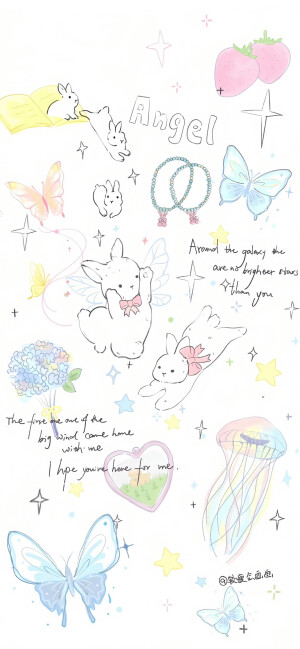 Angel
Around the galaxy the
are no brighter stars
than you
The first one out of the
big wind came home
with me
I hope you're here for me.